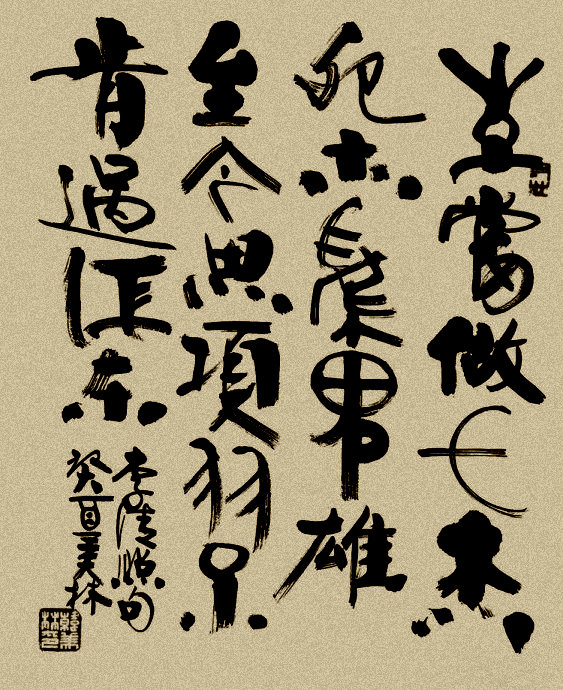 生當做人杰
死亦為鬼雄
至今思項羽不
肯過江東
李清照句
癸酉美林